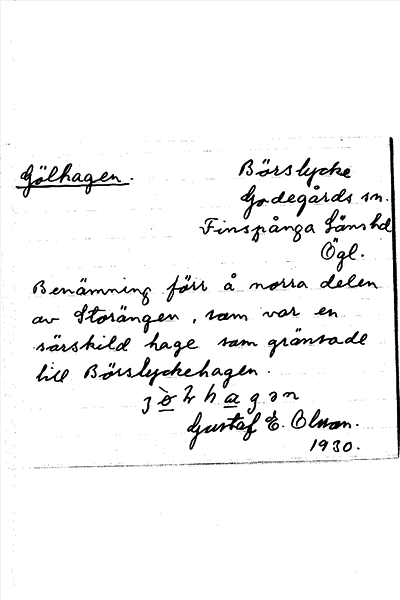 Gölhagen.
Börslycke
Godegårds sn.
Finspånga Länshd
Ögl.
Benämning förr å norra delen
av Storängen, som var en
särskild hage som gränsade
till Börslyckehagen.
Gustaf E. Olsson.
1930.